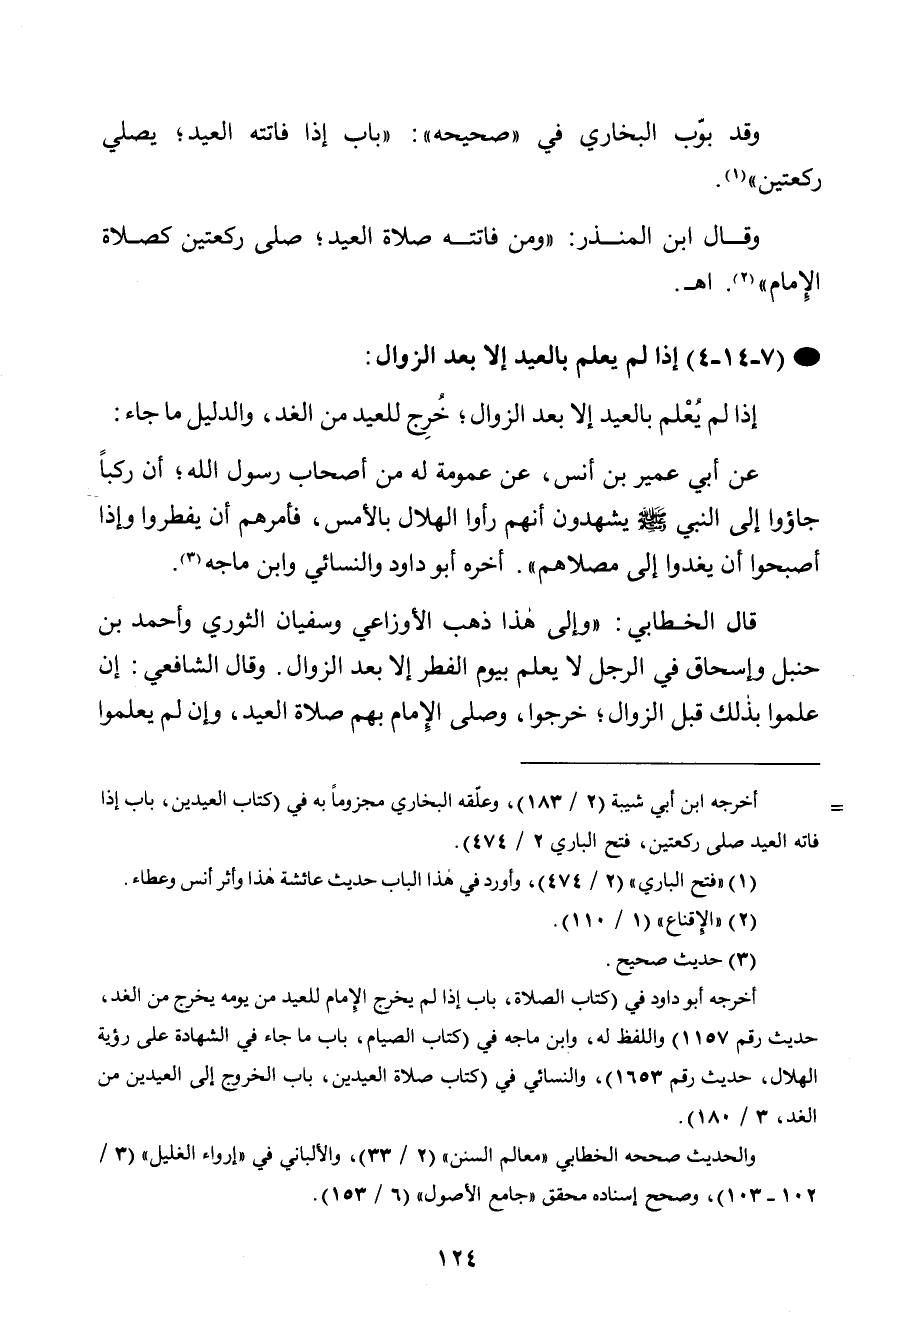 وقد بوّب البخاري في «صحيحه»: «باب إذا فاتته العيد؛ يصلي
ركعتين»(١).
وقـــال ابن المنـــذر: «ومن فاتتـــه صلاة العيد؛ صلى ركعتين كصـلاة
الإمام»(٢). اهـ.
● (٧-١٤-٤) إذا لم يعلم بالعيد إلا بعد الزوال:
إذا لم يُعْلم بالعيد إلا بعد الزوال؛ خُرِج للعيد من الغد، والدليل ما جاء:
عن أبي عمير بن أنس، عن عمومة له من أصحاب رسول الله؛ أن ركباً
جاؤوا إلى النبي ﷺ يشهدون أنهم رأوا الهلال بالأمس، فأمرهم أن يفطروا وإذا
أصبحوا أن يغدوا إلى مصلاهم». أخره أبو داود والنسائي وابن ماجه(٣).
قال الخـطابي: «وإلى هٰذا ذهب الأوزاعي وسفيان الثوري وأحمد بن
حنبل وإسحاق في الرجل لا يعلم بيوم الفطر إلا بعد الزوال. وقال الشافعي: إن
علموا بذٰلك قبل الزوال؛ خرجوا، وصلى الإمام بهم صلاة العيد، وإن لم يعلموا
= أخرجه ابن أبي شيبة (٢ / ١٨٣)، وعلّقه البخاري مجزوماً به في (كتاب العيدين، باب إذا
فاته العيد صلى ركعتين، فتح الباري ٢ / ٤٧٤).
(١) «فتح الباري» (٢ / ٤٧٤)، وأورد في هٰذا الباب حديث عائشة هٰذا وأثر أنس وعطاء.
(٢) «الإقناع» (١ / ١١٠).
(٣) حديث صحيح.
أخرجه أبو داود في (كتاب الصلاة، باب إذا لم يخرج الإمام للعيد من يومه يخرج من الغد،
حديث رقم ١١٥٧) واللفظ له، وابن ماجه في (كتاب الصيام، باب ما جاء في الشهادة على رؤية
الهلال، حديث رقم ١٦٥٣)، والنسائي في (كتاب صلاة العيدين، باب الخروج إلى العيدين من
الغد، ٣ / ١٨٠).
والحديث صححه الخطابي «معالم السنن» (٢ / ٣٣)، والألباني في «إرواء الغليل» (٣ /
١٠٢ - ١٠٣)، وصحح إسناده محقق «جامع الأصول» (٦ / ١٥٣).
١٢٤